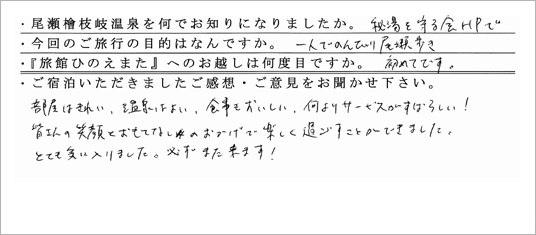 ・尾瀬檜枝岐温泉を何でお知りになりましたか。 秘湯を守る会HPで
・今回のご旅行の目的はなんですか。 一人でのんびり尾瀬歩き
・『旅館ひのえまた』へのお越しは何度目ですか。 初めてです。
・ご宿泊いただきましたご感想・ご意見をお聞かせ下さい。
部屋はきれい、温泉はよい、食事もおいしい、何よりサービスがすばらしい！
皆さんの笑顔とおもてなしのおかげで楽しく過ごすことができました。
とても気に入りました。必ずまた来ます！